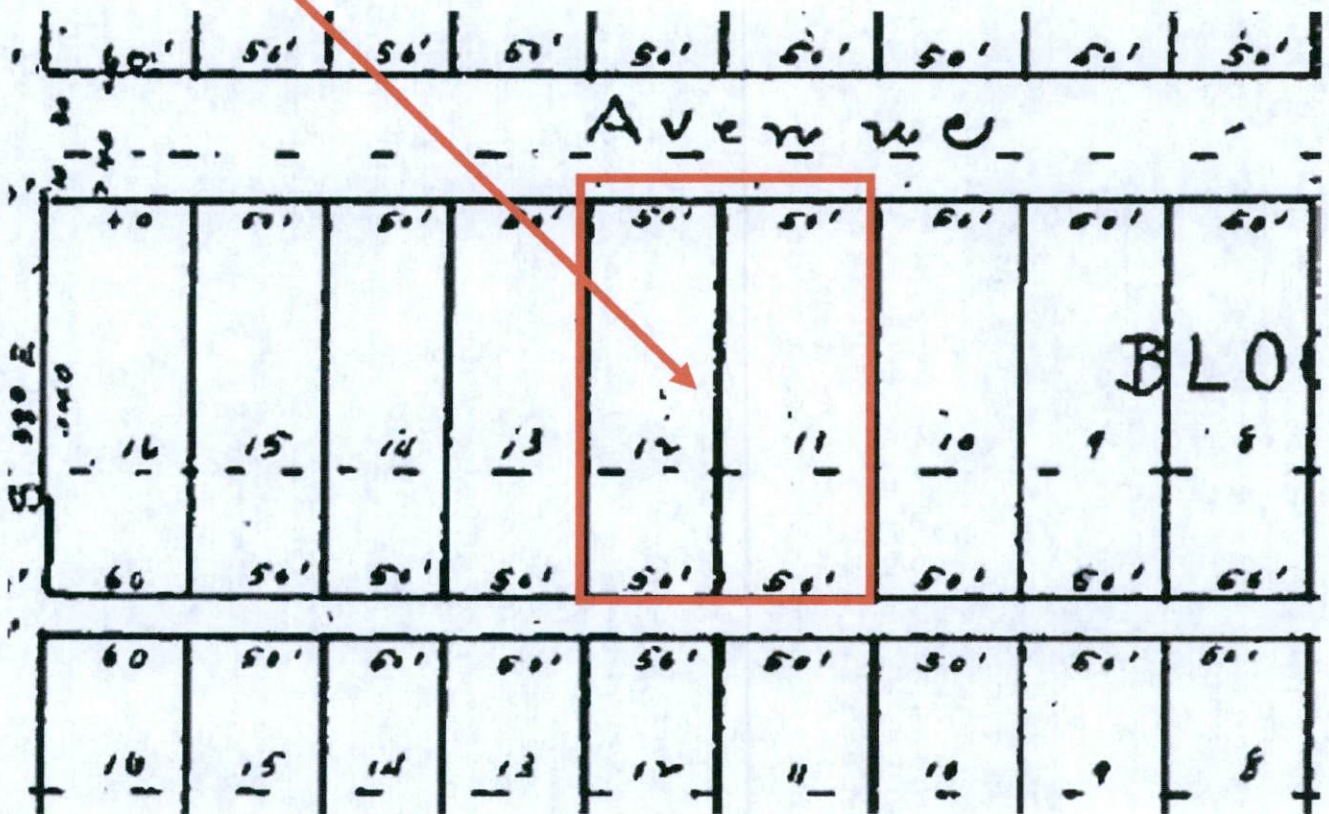 60' 50' 50' 50' 50' 50' 50' 50' 50'
Avenue
50' 50' 50' 50' 50' 50' 50' 50'
BLO
16 15 14 13 12 11 10 9 8
60 50' 50' 50' 50' 50' 50' 50' 50'
60 50' 50' 50' 50' 50' 50' 50' 50'
16 15 14 13 12 11 10 9 8